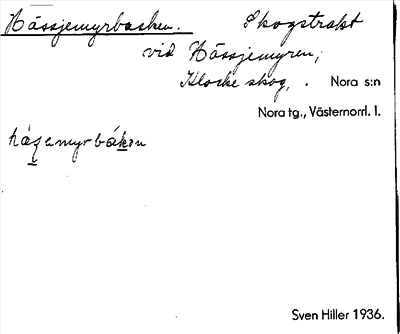 Hässjemyrbacken. Skogstrakt
vid Hässjemyren;
Klocke skog, . Nora s:n
Nora tg., Västernorrl. l.
hásamyrbákən
Sven Hiller 1936.